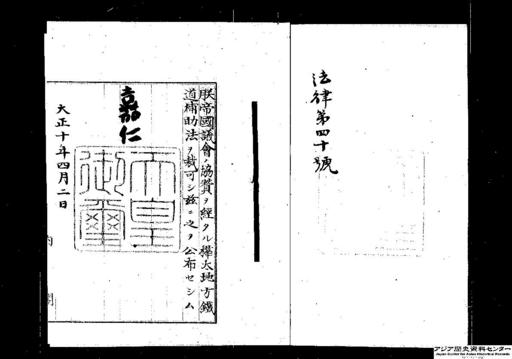 法律第四十號
朕帝國議會ノ協贊ヲ經タル樺太地方鐵
道補助法ヲ裁可シ茲ニ之ヲ公布セシム
嘉仁
天皇
御璽
大正十年四月二日
内閣
アジア歴史資料センター
Japan Center for Asian Historical Records